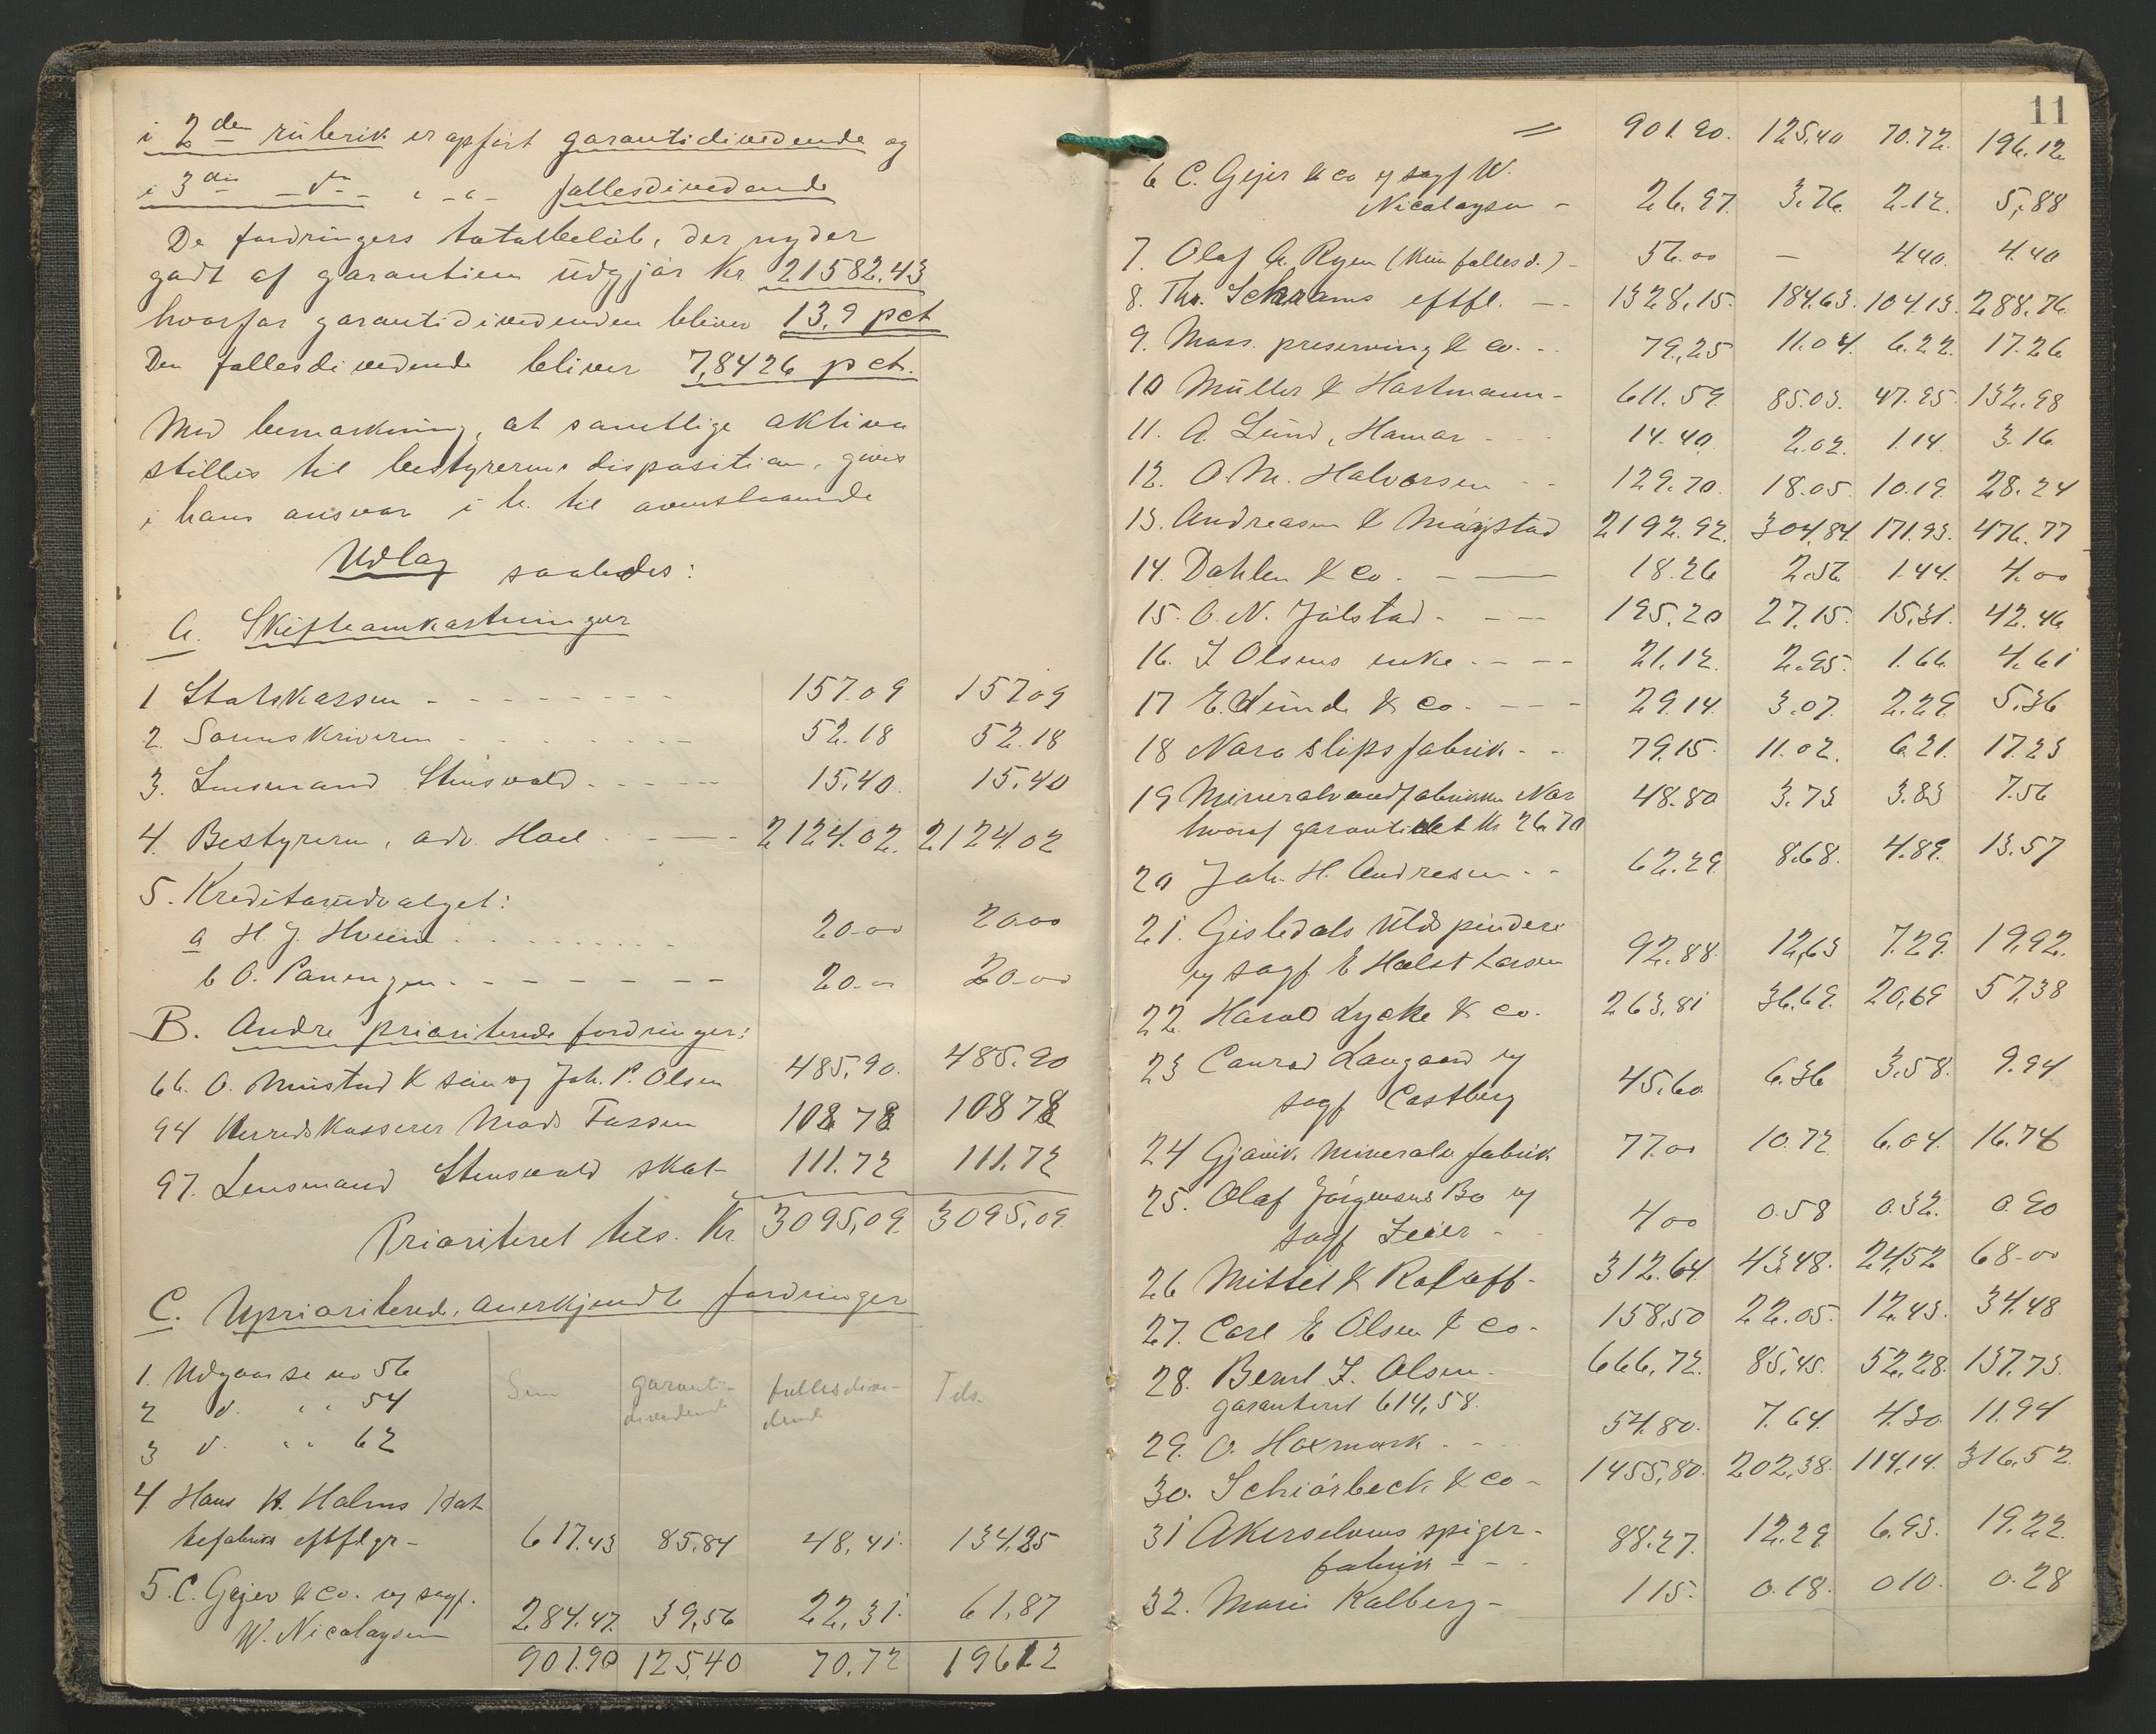 i 2den rubrik er opført garantidividende og
i 3die -"- " -"- fællesdividende
De fordringers totalbeløb, der nyder
godt af garantien udgjør Kr. 21582.43
hvorfor garantidividenden bliver 13,9 pct
Den fællesdividende bliver 7,8426 pct.
Med bemærkning, at samtlige aktiva
stilles til bestyrerens disposition, gives
i hans ansvar i h. til ovenstaaende
Udlæg saaledes:
A. Skifteomkostninger
1 Statskassen - - - 157.09 157.09
2. Sorenskriveren - - - 52.18 52.18
3. Lensmand Stensvold - - - 15.40 15.40
4. Bestyreren, adv. Hoel - - 2124.02. 2124.02
5. Kreditorudvalget:
a H. J. Hveem - - - 20.00 20.00
b O. Panengen - - - 20.00 20.00
B. Andre prioriterede fordringer:
66. O. Mustad & søn og Joh. P. Olsen 485.90. 485.90
94 Herredskasserer Mads Fossen 108 78 108 78
97. Lensmand Stensvold skat - 111.72 111.72
Prioriteret tils. Kr. 3095,09 3095,09
C. Uprioriterede, anerkjendte fordringer
1. Udgaar se no 56
2 d. " " 54
3 d. " " 62
Sum garanti- fællesdivi- Tils.
dividende dende
4. Hans H. Holms Hat
tefabriks eftflgr - 617.43 85.84 48.41. 134.25
5. C. Gejer & co. v/ sagf.
W. Nicolaysen 284.47. 39,56 22,31. 61,87
901.90 125,40 70,72 196 12
11
= 901.90. 125,40 70.72. 196.12
6 C. Gejer & co v/ sagf W.
Nicolaysen - 26.97. 3.76. 2.12. 5,88
7. Olaf A. Ryen (kun fællesd.) - 56.00 - 4.40. 4.40
8. Thv. Schrams eftfl. - - 1328,15. 184.63. 104.13. 288.76
9. Moss. preserving & co. - - 79,25 11.04. 6.22. 17.26
10 Müller & Hartmann - 611.59. 85.03. 47.95. 132.98
11. A. Lund, Hamar - - 14.40. 2.02. 1.14. 3.16
12. O. M. Halvorsen - - 129.70. 18.05. 10.19. 28.24
13. Andreasen & Møystad 2192.92. 304,84. 171.93. 476.77
14. Dahlen & Co. - - 18.26 2.56 1.44. 4.00
15. O. N. Jølstad - - - 195.20 27.15. 15,31. 42.46
16. J Olsens enke - - - 21.12. 2.95. 1.66. 4.61
17 E. Lunde & Co - - - 29.14. 3.07. 2.29. 5.36
18 Nora slipsfabrik - - 79.15. 11.02. 6.21. 17.23
19 Mineralvandfabrikken Nor 48.80 3.73 3.83 7.56
hvoraf garantidet Kr 26.70
20 Joh. H. Andresen - - 62.29 8.68. 4.89. 13.57
21. Gisledals uldspinderi
v/ sagf E Holst Larsen 92.88. 12,63 7.29. 19,92.
22. Harald Lycke & co. 263,81 36,69. 20,69 57,38
23 Conrad Langaard v/
sagf Castberg 45.60. 6.36 3.58. 9.94
24 Gjøvik mineralv fabrik 77.00 10.72 6.04. 16.76
25. Olaf Jørgensens Bo v/
sagf Zeier - 4 00 0.58 0.32. 0.90
26 Mittet & Rolseff - 312.64. 43,48. 24,52 68.00
27. Carl E Olsen & Co - 158,50 22.05. 12.43. 34.48
28. Bernt J. Olsen - 666,72. 85,45. 52,28. 137.73.
garanteret 614,58.
29. O. Hoxmark - - 54.80. 7.64. 4.30 11.94
30. Schiørbeck & co - 1455,80. 202,38. 114,14. 316.52
31 Akerselvens spiger-
fabrik - - 88.27. 12.29 6.93. 19.22.
32. Marie Kalberg - 1 15. 0.18. 0 10. 0.28